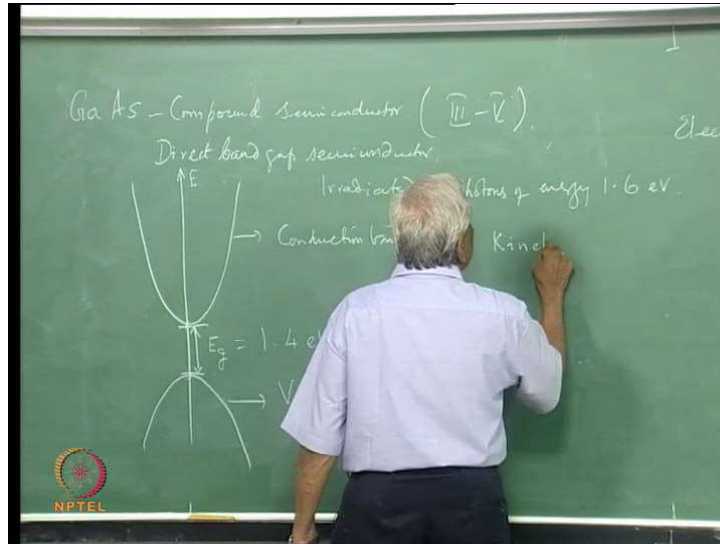 GaAs - Compound semiconductor (III-V).
Elec
Direct band gap semiconductor.
E
Irradiated photons of energy 1.6 eV.
Conduction
Kine
E_g = 1.4 e
V
NPTEL